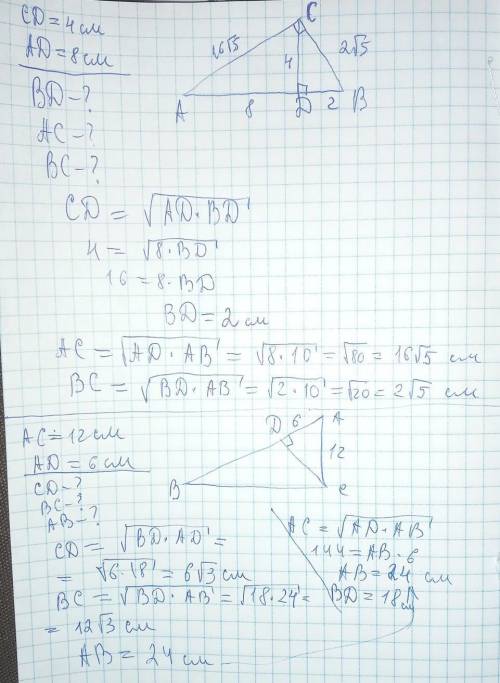 CD = 4 см
AD = 8 см
BD - ?
AC - ?
BC - ?
C
16√5
4
2√5
A
8
D
2
B
CD = √AD · BD
4 = √8 · BD
16 = 8 · BD
BD = 2 см
AC = √AD · AB = √8 · 10 = √80 = 16√5 см
BC = √BD · AB = √2 · 10 = √20 = 2√5 см
AC = 12 см
AD = 6 см
CD - ?
BC - ?
AB - ?
D
6
A
12
B
C
CD = √BD · AD =
= √6 · 18 = 6√3 см
BC = √BD · AB = √18 · 24 =
= 12√3 см
AB = 24 см
AC = √AD · AB
144 = AB · 6
AB = 24 см
BD = 18 см